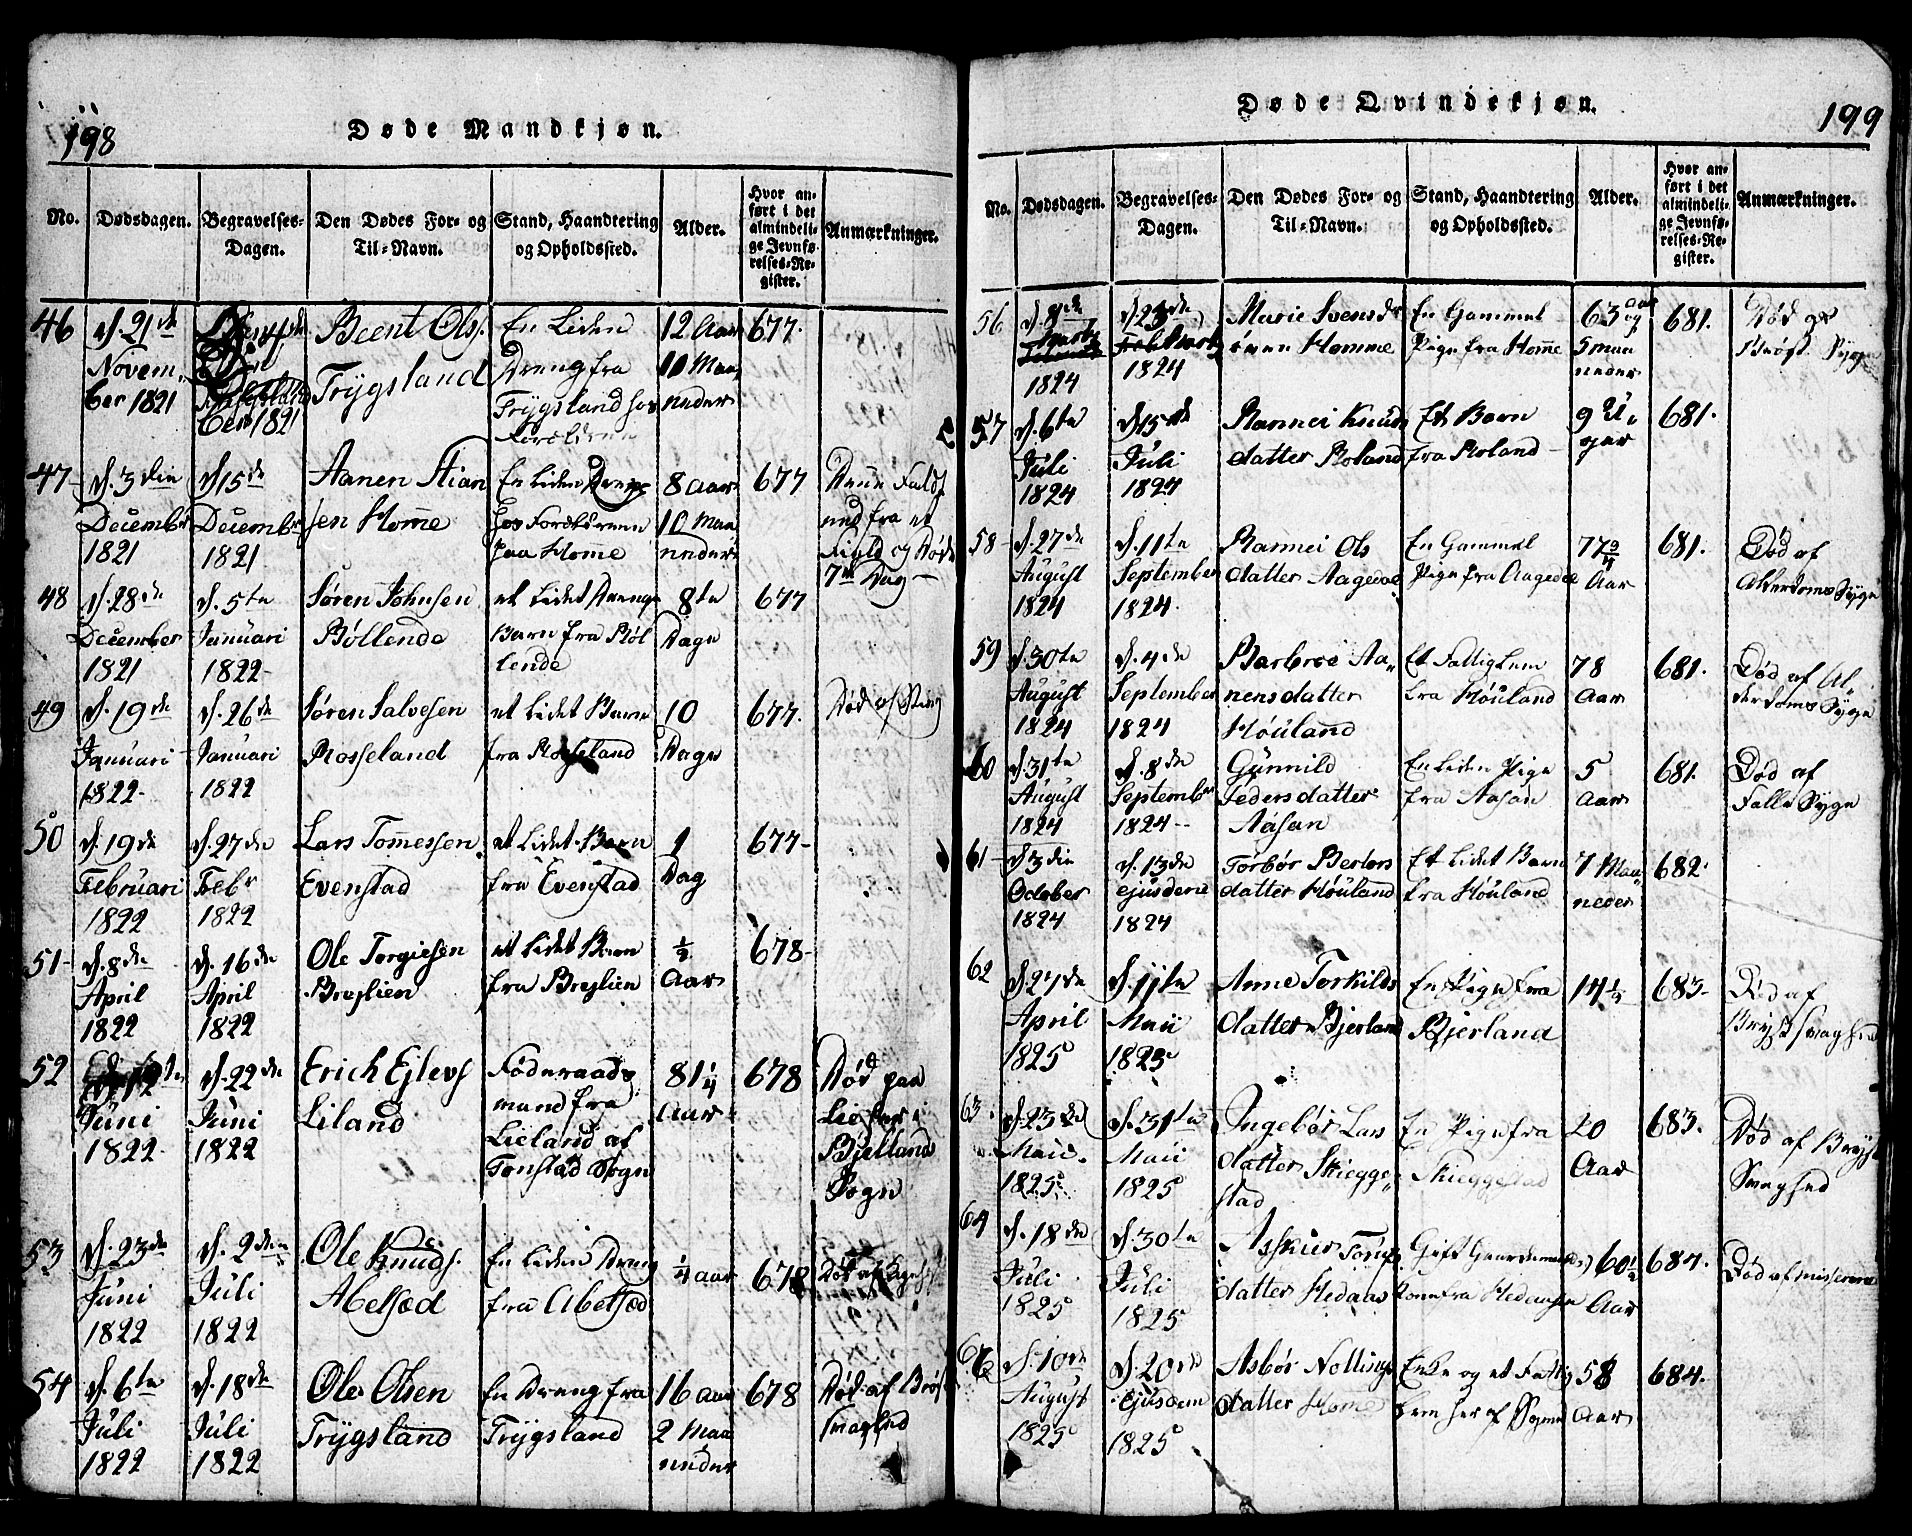 198
Døde Mandkjøn.
No. Dødsdagen. Begravelses-Dagen. Den Dødes For- og Til-Navn. Stand, Haandtering og Opholdssted. Alder. Hvor anført i det almindelige Jevnførelses-Register. Anmærkninger.
46 d. 21de Beent Ols. En Liden 12 Aar 677.
Novem- Trÿgsland Dreng fra 10 Maa
ber 1821 ber 1821 Trÿgsland hos neder
Forældrene
47 d. 3die d. 15de Aanen Stian En Liden Dreng 8 Aar 677 Faldt
Decembr Decembr sen Homme hos Forældrene 10 Maa ned fra et
1821 1821 paa Homme neder Field og Døde
7de Dag
48 d. 28de d. 5te Søren Johnsen et Lidet Drenge 8te 677
December Januari Røllende Barn fra Røl Dage
1821 1822 lende
49 d. 19de d. 26de Søren Salvesen et Lidet Barn 10 677. Død af Sting
Januari Januari Rosseland fra Rosseland Dage
1822 1822
50 d. 19de d. 27de Lars Tommessen et Lidet Barn 1 677
Februari Febr Evenstad fra Evenstad Dag
1822 1822
51 d. 8de d. 16de Ole Torgiesen et Lidet Barn ½ 678
April April Breslien fra Breslien Aar
1822 1822
52 d. 12te d. 22de Erich Ejlevs Føderaads 81¼ 678 Død paa
Juni Juni Liland mand fra Aar
1822 1822 Lieland af Bjelland
Tonstad Sogn Sogn
53 d. 23de d. 2den Ole Knuds. En Liden Dreng ¼ Aar 678 Død af
Juni Juli Abelsæd fra Abelsæd
1822 1822
54 d. 6te d. 18de Ole Olsen En Dreng fra 16 Aar 678 Død af Brøst
Juli Juli Trÿgsland Trÿgsland 2 Maa Svaghed
1822 1822 neder
199
Døde Qvindekjøn.
No. Dødsdagen. Begravelses-Dagen. Den Dødes For- og Til-Navn. Stand, Haandtering og Opholdssted. Alder. Hvor anført i det almindelige Jevnførelses-Register. Anmærkninger.
56 d. 8de d. 23de Marie Svensdr En Gammel 63 681. Død af
Homme Pige fra Homme 5 maa Brøst Syge
1824 1824 neder
57 d. 6te d. 15de Rannei Knuds Et Barn 9 U- 681.
Juli Juli datter Roland fra Roland ger
1824 1824
58 d. 27de d. 11te Rannei Ols En Gammel 77 681. Død af
August September datter Aagedal Pige fra Aagedal Aar Alderdoms Syge
1824 1824
59 d. 30te d. 4de Barbroe Aa- Et Fattig Lem 78 681. Død af Al-
August September nensdatter fra Høuland Aar derdoms Syge
1824 1824 Høuland
60 d. 31te d. 8de Gunnild En Liden Pige 5 681. Død af
August Septembr Pedersdatter fra Aasan Aar Falde Syge
1824 1824 Aasan
61 d. 3die d. 13de Torbør Berters Et Lidet Barn 7 Maa- 682.
October ejusdem datter Høuland fra Høuland neder
1824 1824
62 d. 27de d. 11te Anne Torkilds En Pige fra 14¼ 683 Død af
April Maii datter Bjerland Bjerland Bryst Svaghed
1825 1825
63. d. 23de d. 31te Ingebør Lars En Pige fra 20 683. Død af Bryst
Maii Maii datter Skiegge- Skieggestad Aar Svaghed
1825 1825 stad
64 d. 18de d. 30te Gift Gaardmands 60½ 684. Død af
Juli Juli datter Hedaas Kone fra Aar
1825 1825
d. 10de d. 20de Asbør Nottings Enke og et Fattig 58 684.
August ejusdem datter Home Lem her af Sognet Aar
1825 1825